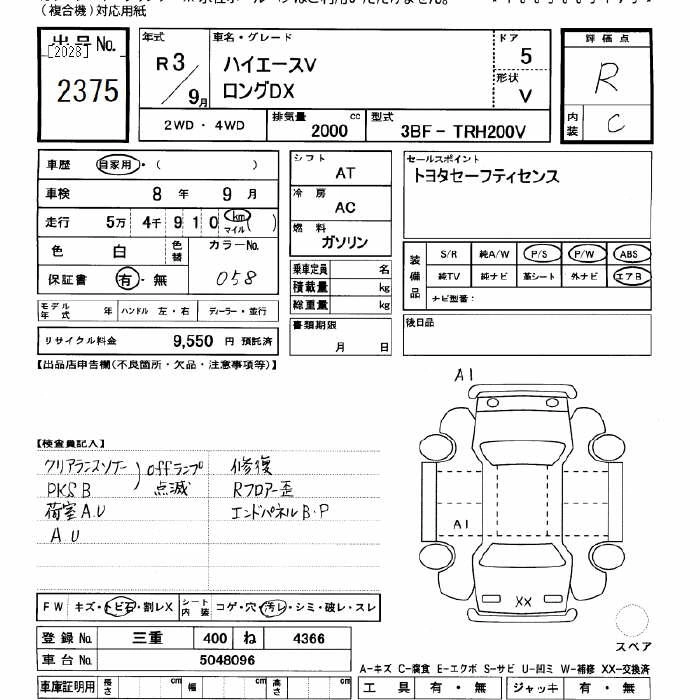 (複合機)対応用紙
出品No.
[2028]
2375
年式
R3/9月
車名・グレード
ハイエースV
ロングDX
ドア
5
形状
V
2WD・4WD
排気量
2000 cc
型式
3BF-TRH200V
評価点
R
内装
C
車歴 自家用・( )
車検 8年 9月
走行 5万 4千 9 1 0 km マイル ( )
色 白 色替 カラーNo.
058
保証書 有・無
モデル年式 年 ハンドル 左・右 ディーラー・並行
リサイクル料金 9,550 円 預託済
シフト
AT
冷房
AC
燃料
ガソリン
乗車定員 名
積載量 kg
総重量 kg
書類期限
月 日
セールスポイント
トヨタセーフティセンス
装備品
S/R 純A/W P/S P/W ABS
純TV 純ナビ 革シート 外ナビ エアB
ナビ型番:
後日品
【出品店申告欄(不良箇所・欠品・注意事項等)】
【検査員記入】
クリアランスソナー
PKSB
offランプ
点滅
荷室A.U
AU
修復
Rフロアー歪
エンドパネルB・P
A1
A1
XX
スペア
FW キズ・トビ石・割レX シート内装 コゲ・穴・汚レ・シミ・破レ・スレ
登録No. 三重 400 ね 4366
車台No. 5048096
車庫証明用 長さ cm 幅 cm 高さ cm
A-キズ C-腐食 E-エクボ S-サビ U-凹ミ W-補修 XX-交換済
工具 有・無 ジャッキ 有・無